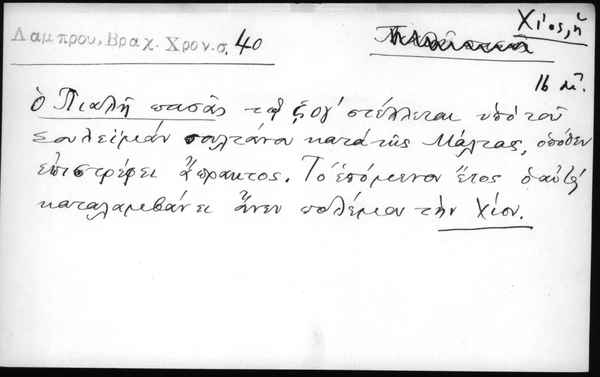 Χίος, ἡ
Λαμπρου, Βραχ. Χρον. σ. 40
16 αἰ.
ὁ Πιαλῆ πασᾶς τῷ ͵ζογ΄ στέλλεται ὑπὸ τοῦ
Σουλεϊμὰν σουλτάνου κατὰ τῆς Μάλτας, ὁπόθεν
ἐπιστρέφει ἄπρακτος. Τὸ ἑπόμενον ἔτος ὁ αὐτὸς
καταλαμβάνει ἄνευ πολέμου τὴν Χίον.